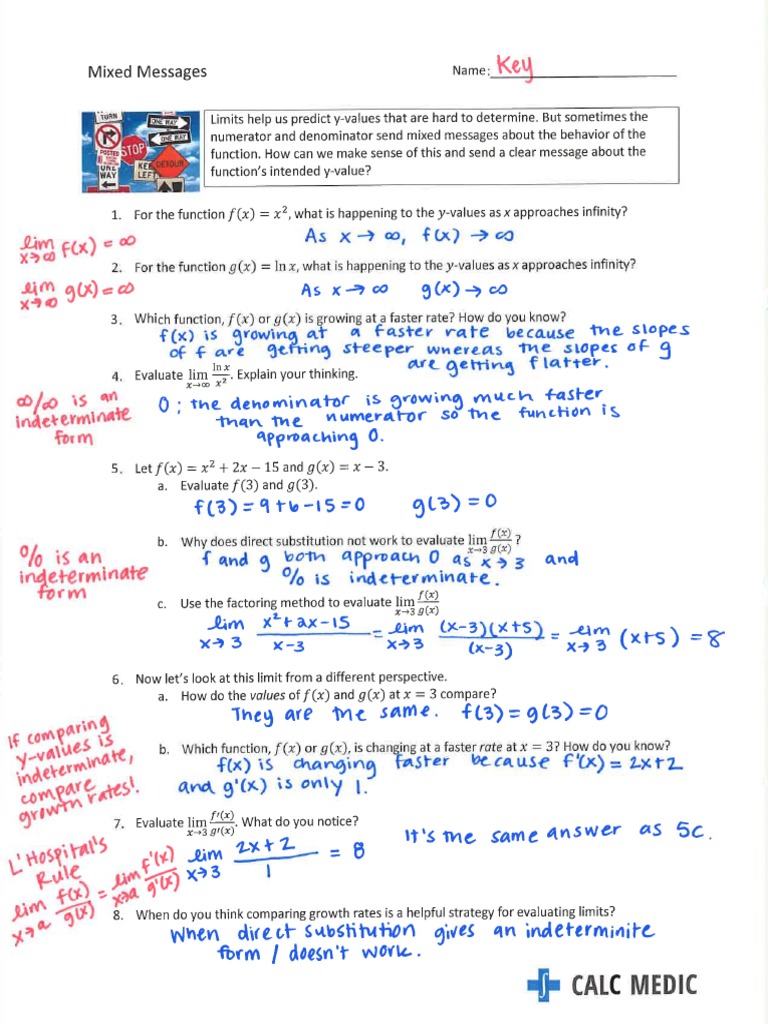 Mixed Messages
Name: Key
TURN
ONE WAY
ONE WAY
STOP
DETOUR
KEEP
LEFT
ONE
WAY
Limits help us predict y-values that are hard to determine. But sometimes the
numerator and denominator send mixed messages about the behavior of the
function. How can we make sense of this and send a clear message about the
function's intended y-value?
1. For the function f(x) = x², what is happening to the y-values as x approaches infinity?
lim x→∞ f(x) = ∞
As x → ∞, f(x) → ∞
2. For the function g(x) = ln x, what is happening to the y-values as x approaches infinity?
lim x→∞ g(x) = ∞
As x → ∞ g(x) → ∞
3. Which function, f(x) or g(x) is growing at a faster rate? How do you know?
f(x) is growing at a faster rate because the slopes
of f are getting steeper whereas the slopes of g
are getting flatter.
4. Evaluate lim x→∞ ln x / x². Explain your thinking.
∞/∞ is an
indeterminate
form
0; the denominator is growing much faster
than the numerator so the function is
approaching 0.
5. Let f(x) = x² + 2x − 15 and g(x) = x − 3.
a. Evaluate f(3) and g(3).
f(3) = 9+6−15=0 g(3) = 0
b. Why does direct substitution not work to evaluate lim x→3 f(x)/g(x) ?
0/0 is an
indeterminate
form
f and g both approach 0 as x→3 and
0/0 is indeterminate.
c. Use the factoring method to evaluate lim x→3 f(x)/g(x)
lim x→3 x²+2x−15 / x−3 = lim x→3 (x−3)(x+5) / (x−3) = lim x→3 (x+5) = 8
6. Now let's look at this limit from a different perspective.
a. How do the values of f(x) and g(x) at x = 3 compare?
They are the same. f(3) = g(3) = 0
b. Which function, f(x) or g(x), is changing at a faster rate at x = 3? How do you know?
If comparing
y-values is
indeterminate,
compare
growth rates!
f(x) is changing faster because f'(x) = 2x+2
and g'(x) is only 1.
7. Evaluate lim x→3 f'(x)/g'(x). What do you notice?
L'Hospital's
Rule
lim x→a f(x)/g(x) = lim x→a f'(x)/g'(x)
lim x→3 2x+2 / 1 = 8
It's the same answer as 5c.
8. When do you think comparing growth rates is a helpful strategy for evaluating limits?
When direct substitution gives an indeterminite
form / doesn't work.
CALC MEDIC